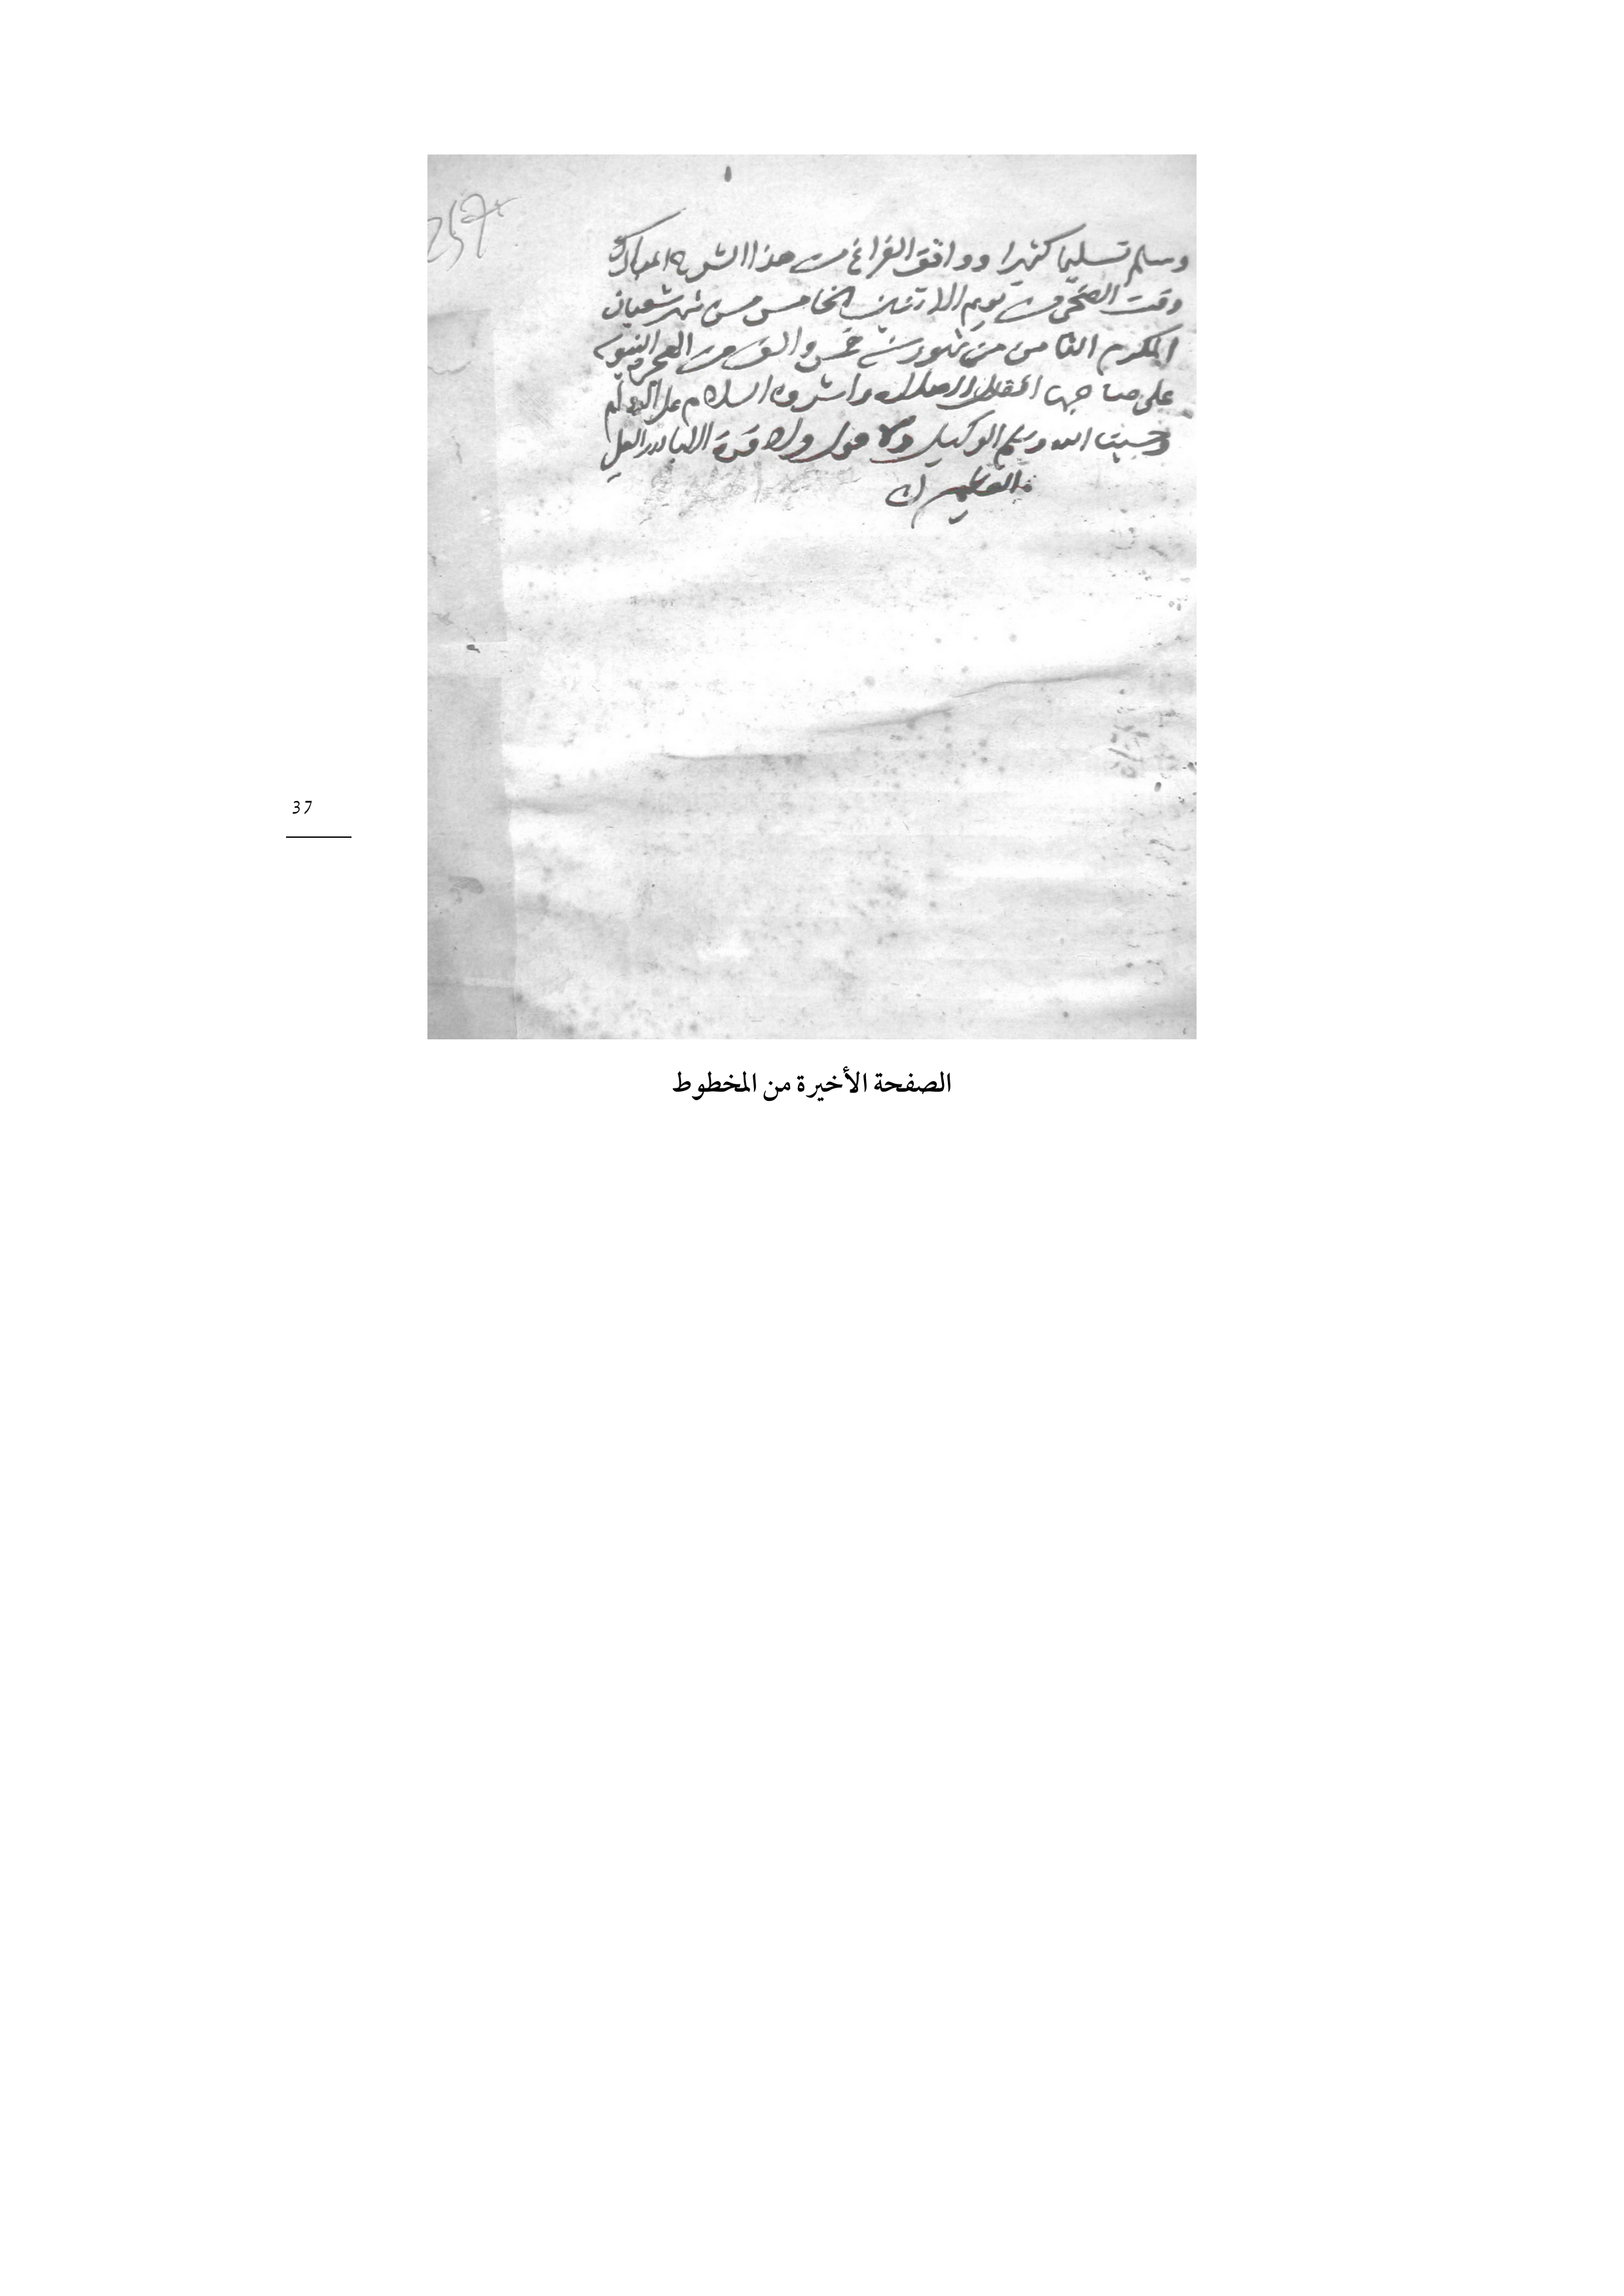 257
وسلم تسليما كثيرا ووافق الفراغ من هذا الشرح المبارك
وقت الضحى من يوم الاثنين الخامس من شهر شعبان
المكرم الثامن من شهور سنة خمس والف من الهجرة النبوية
على صاحبها افضل الصلاة واشرف السلام
وحسبنا الله ونعم الوكيل ولا حول ولا قوة الا بالله العلي
العظيم
37
الصفحة الأخيرة من المخطوط